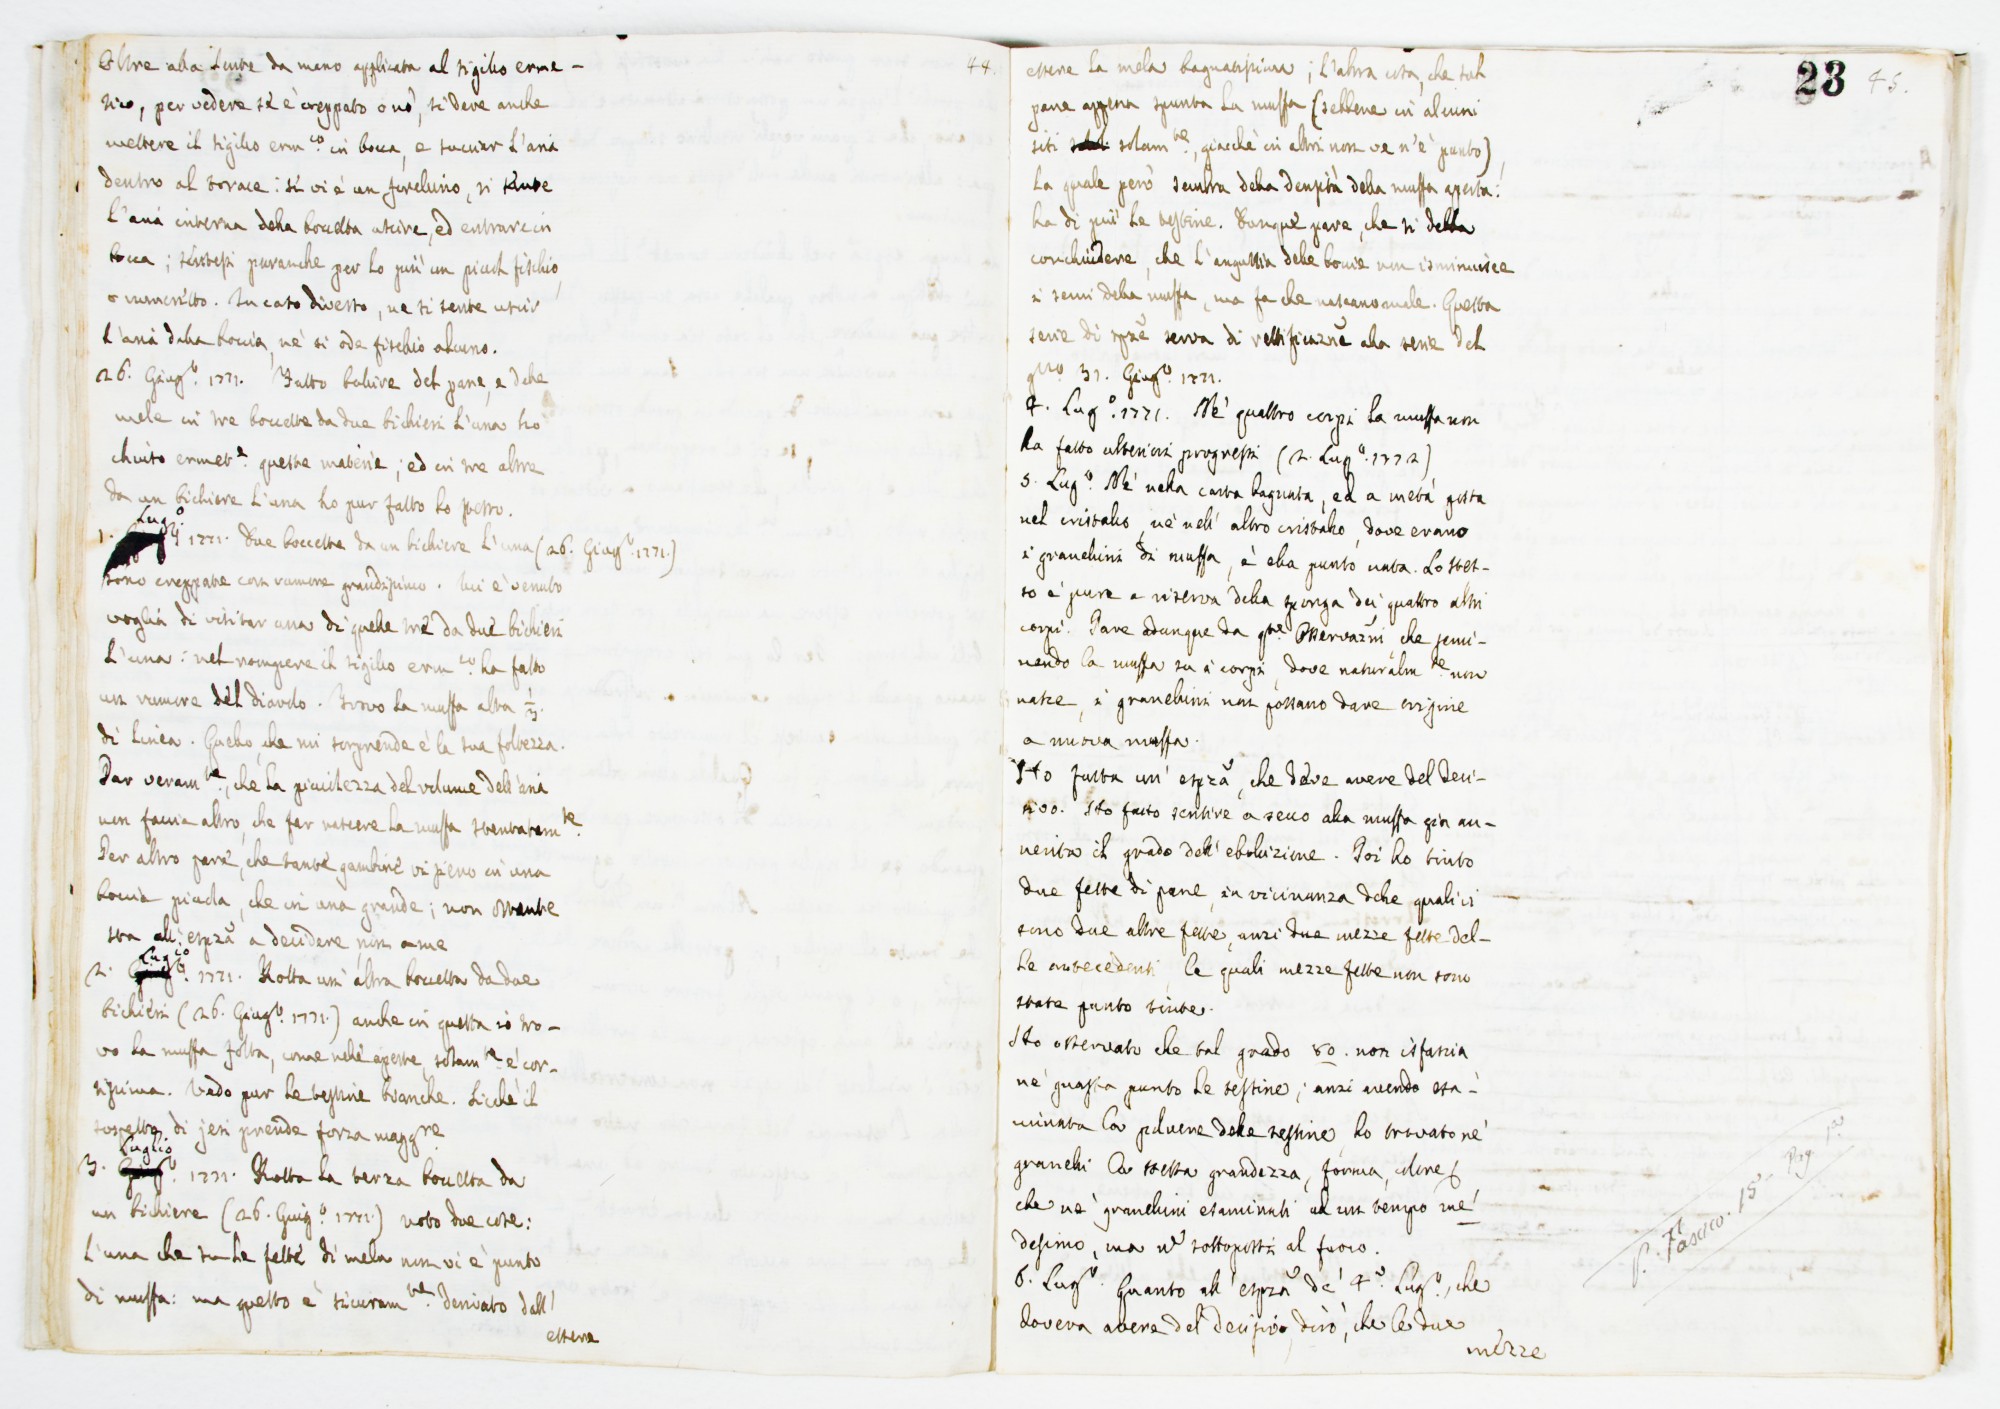 44.
Oltre alla lente da mano applicata al sigillo erme-
tico, per vedere se è creppato o nò, si deve anche
mettere il sigillo erm.co in bocca, e succiar l'aria
dentro al torace: se vi è un forellino, si sente
l'aria interna della boccetta uscire, ed entrare in
bocca; sentesi puranche per lo più un picciol fischio,
o rumoretto. In caso diverso, ne si sente uscir
l'aria dalla boccia, nè si ode fischio alcuno.
26. Giug.o 1771. Fatto bollire del pane, e delle
mele in tre boccette da due bichieri l'una ho
chiuso ermet.e queste materie; ed in tre altre
da un bichiere l'una ho pur fatto lo stesso.
Lug.o
1. 1771. Due boccette da un bichiere l'una (26. Giug.o 1771.)
sono creppate con rumore grandissimo. Mi è venuto
voglia di visitar una di quelle tré da due bichieri
l'una: nel rompere il sigillo erm.co ha fatto
un rumore del diavolo. Trovo la muffa alta 1/3.
di linea. Quello, che mi sorprende è la sua foltezza.
Par veram.te, che la picciolezza del volume dell'aria
non faccia altro, che far nascere la muffa stentatam.te.
Per altro pare, che tante gambine vi sieno in una
boccia picciola, che in una grande; non ostante
sta all'esprza a decidere, non a me
Luglio
2. 1771. Rotta un'altra boccetta da due
bichieri (26. Giug.o 1771.) anche in questa io tro-
vo la muffa folta, come nelle aperte, solam.te è cor-
tissima. Vedo pur le testine bianche. Sicchè il
sospetto di jeri prende forza magg.re
Luglio
3. 1771. Rotta la terza boccetta da
un bichiere (26. Giug.o 1771.) noto due cose:
l'una che su le fette di mela non vi è punto
di muffa: ma questo è sicuram.te derivato dall'
essere
23 45.
essere la mela bagnatissima; l'altra cosa, che sul
pane appena spunta la muffa (sebbene in alcuni
siti solam.te, giacchè in altri non ve n'è punto),
la quale però sembra della densità della muffa aperta:
ha di più le testine. Dunque pare, che si debba
conchiudere, che l'angustia delle boccie non isminuisce
i semi della muffa, ma fa che nascano male. Questa
serie di sprze serva di rettificazne alla serie del
31. Giug.o 1771.
4. Lug.o 1771. Ne' quattro corpi la muffa non
ha fatto ulteriori progressi (2. Lug.o 1772)
5. Lug.o Nè nella carta bagnata, ed a metà posta
nel cristallo, nè nell'altro cristallo, dove erano
i granellini di muffa, è ella punto nata. Lo stes-
so è pure a riserva della sponga dei quattro altri
corpi. Pare dunque da q.te osservazni che semi-
nendo la muffa su i corpi, dove naturalm.te non
nasce, i granellini non possano dare origine
a nuova muffa.
Ho fatta un'esprza, che deve avere del deci-
sivo. Ho fatto sentire a secco alla muffa già an-
nerita il grado dell'ebollizione. Poi ho tinto
due fette di pane, in vicinanza delle quali ci
sono due altre fette, anzi due mezze fette del-
le antecedenti, le quali mezze fette non sono
state punto tinte.
Ho osservato che tal grado 80. non isfascia
nè guasta punto le testine; anzi avendo esa-
minata la polvere delle testine, ho trovato ne'
granelli la stessa grandezza, forma, colore
che ne' granellini esaminati ad un tempo me-
desimo, ma n. sottoposti al fuoco.
6. Lug.o Quanto all'esprza de' 4. Lug.o, che
doveva avere del decisivo, dirò, che le due
mezze
P. Fascico. 15. Pag. 1.a